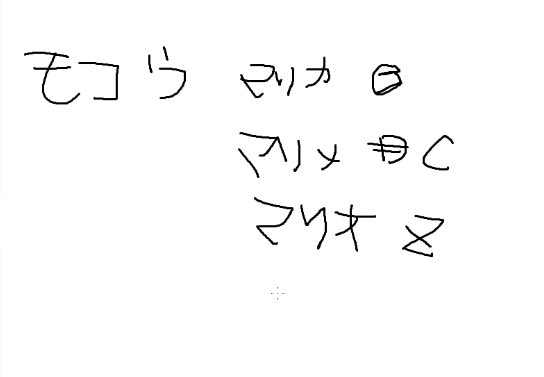 モコウ マリカ B
マリメ C
マリオ Z